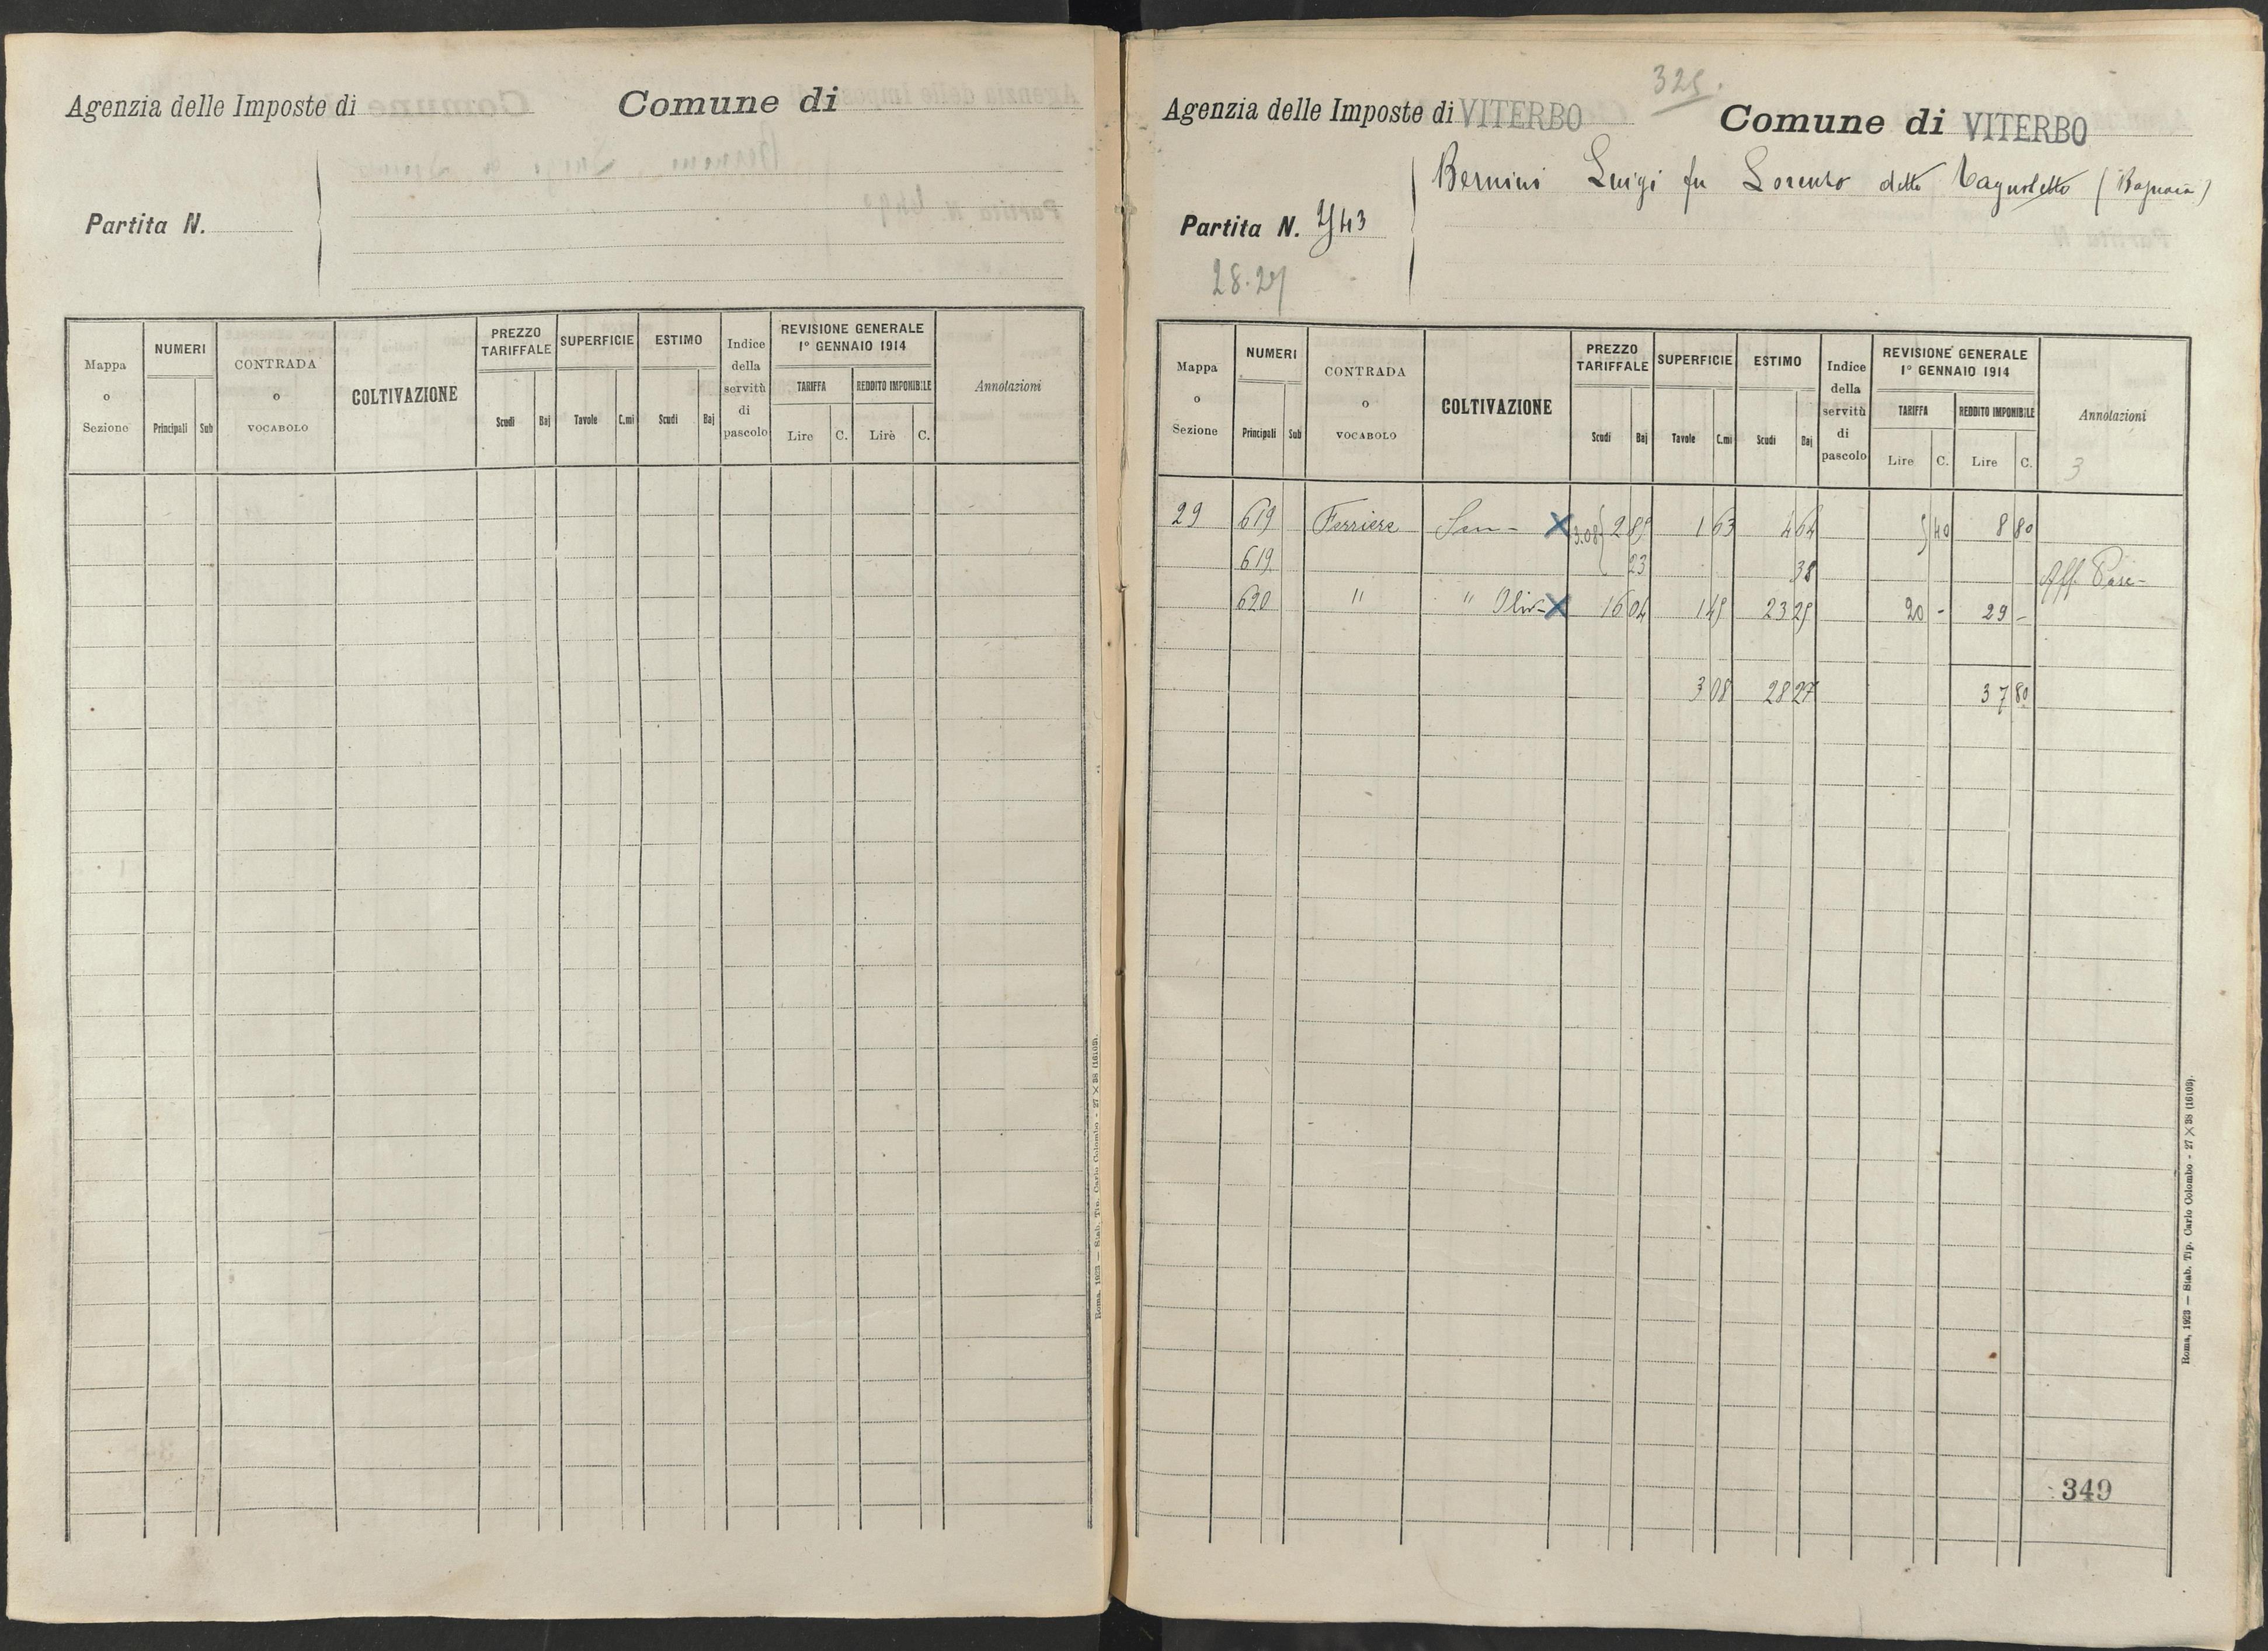 Agenzia delle Imposte di
Comune di
Partita N.
Mappa o Sezione
NUMERI
Principali Sub
CONTRADA o VOCABOLO
COLTIVAZIONE
PREZZO TARIFFALE
Scudi Baj
SUPERFICIE
Tavole C.mi
ESTIMO
Scudi Baj
Indice della servitù di pascolo
REVISIONE GENERALE
1° GENNAIO 1914
TARIFFA
Lire C.
REDDITO IMPONIBILE
Lire C.
Annotazioni
Roma, 1923 — Stab. Tip. Carlo Colombo - 27 × 38 (16103).
325.
Agenzia delle Imposte di VITERBO
Comune di VITERBO
Bernini Luigi fu Lorenzo detto (Bagnaia)
Partita N. 43
28.27
Mappa o Sezione
NUMERI
Principali Sub
CONTRADA o VOCABOLO
COLTIVAZIONE
PREZZO TARIFFALE
Scudi Baj
SUPERFICIE
Tavole C.mi
ESTIMO
Scudi Baj
Indice della servitù di pascolo
REVISIONE GENERALE
1° GENNAIO 1914
TARIFFA
Lire C.
REDDITO IMPONIBILE
Lire C.
Annotazioni
3
29 619 Ferriera Sem- X 3.08 2 85 1 63 4 64 5 40 8 80
619 23 38 Aff. Pasc-
620 " " Oliv- X 16 04 1 45 23 25 20 - 29 -
3 08 28 27 37 80
349
Roma, 1923 — Stab. Tip. Carlo Colombo - 27 × 38 (16103).